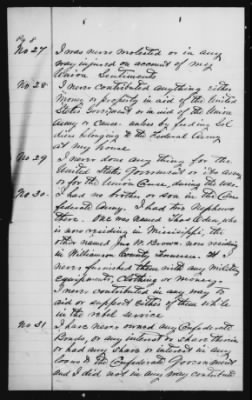 Pg 8
No 27 I was never molested or in any
way injured on account of my
Union Sentiments
No 28 I never contributed anything either
money or property in aid of the United
States Government or in aid of the Union
Army or cause unless by feeding Sol
diers belonging to the Federal Army
at my house
No 29 I never done any thing for the
United States Government or its army
or for the Union Cause, during the war.
No 30. I had no brother or son in the Con
federate Army. I had two Nephews
there. One was named Thos Eden, who
is now residing in Mississippi, the
other named Jas W. Brown now residing
in Williamson County, Tennessee. I
never furnished them with any military
equipments, clothing or money.
I never contributed in any way to
aid or support either of them while
in the rebel service
No 31 I have never owned any Confederate
Bonds, or any interest or share therein
or had any share or interest in any
loan to the Confederate Government
and I did not in any way contribute